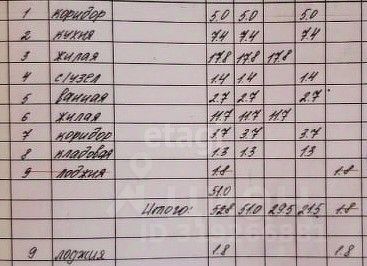 1 коридор 5.0 5.0 5.0
2 кухня 7.4 7.4 7.4
3 жилая 17.8 17.8 17.8
4 с/узел 1.4 1.4 1.4
5 ванная 2.7 2.7 2.7
6 жилая 11.7 11.7 11.7
7 коридор 3.7 3.7 3.7
8 кладовая 1.3 1.3 1.3
9 лоджия 1.8 1.8
51.0
Итого: 52.8 51.0 29.5 21.5 1.8
9 лоджия 1.8 1.8